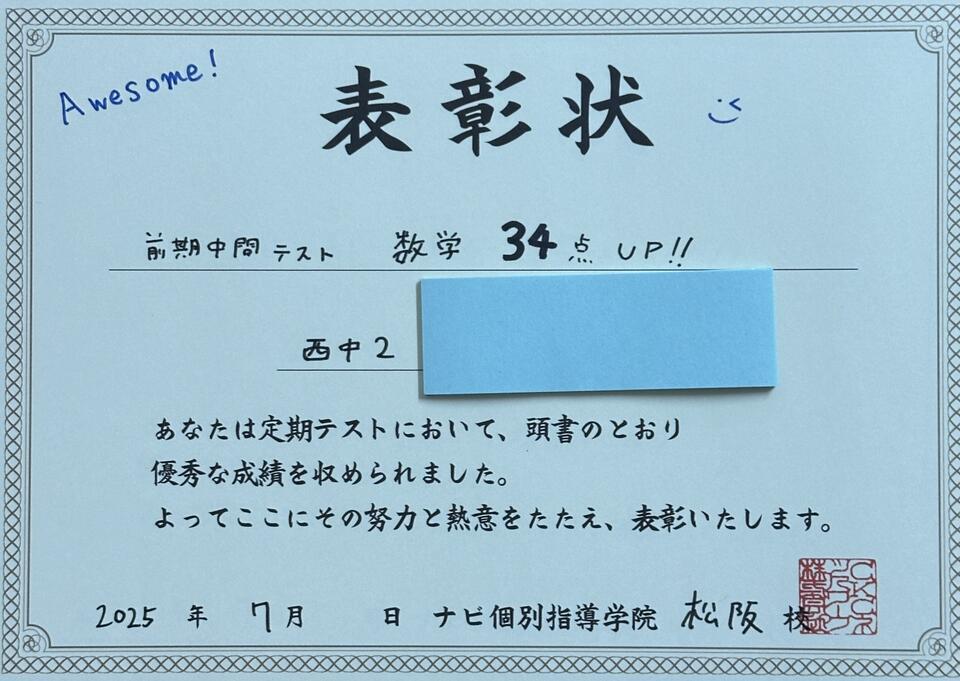 Awesome!
表彰状
前期中間テスト 数学 34点 UP!!
西中2
あなたは定期テストにおいて、頭書のとおり
優秀な成績を収められました。
よってここにその努力と熱意をたたえ、表彰いたします。
2025年 7月 日 ナビ個別指導学院 松阪校